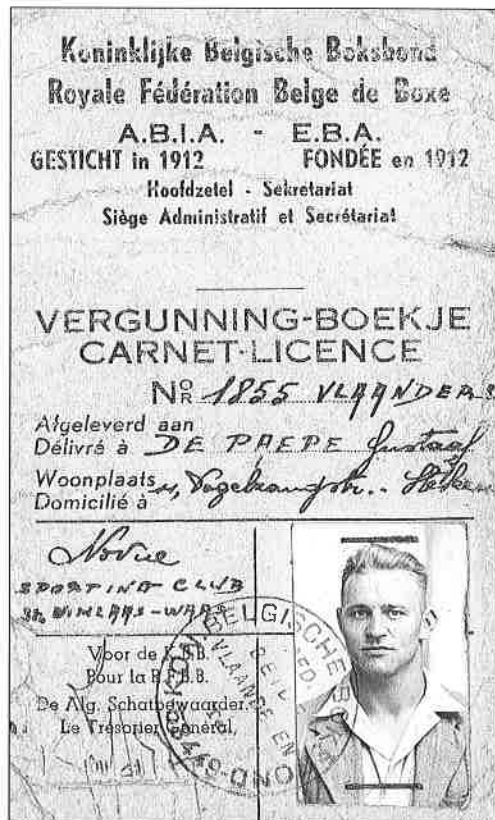 Koninklijke Belgische Boksbond
Royale Fédération Belge de Boxe
A.B.I.A. - E.B.A.
GESTICHT in 1912 FONDÉE en 1912
Hoofdzetel - Sekretariat
Siège Administratif et Secrétariat
VERGUNNING-BOEKJE
CARNET-LICENCE
NOR 1855 VLAANDERS
Afgeleverd aan
Délivré à DE PAEPE Gustaaf
Woonplaats
Domicilié à Vogelzangstr.. Steken
Novice
SPORTING CLUB
St NIKLAAS-WAAS
Voor de K.B.B.
Pour la R.F.B.B.
De Alg. Schatbewaarder,
Le Trésorier Général,
KON. BELGISCHE BOKSBOND
VLAANDEREN